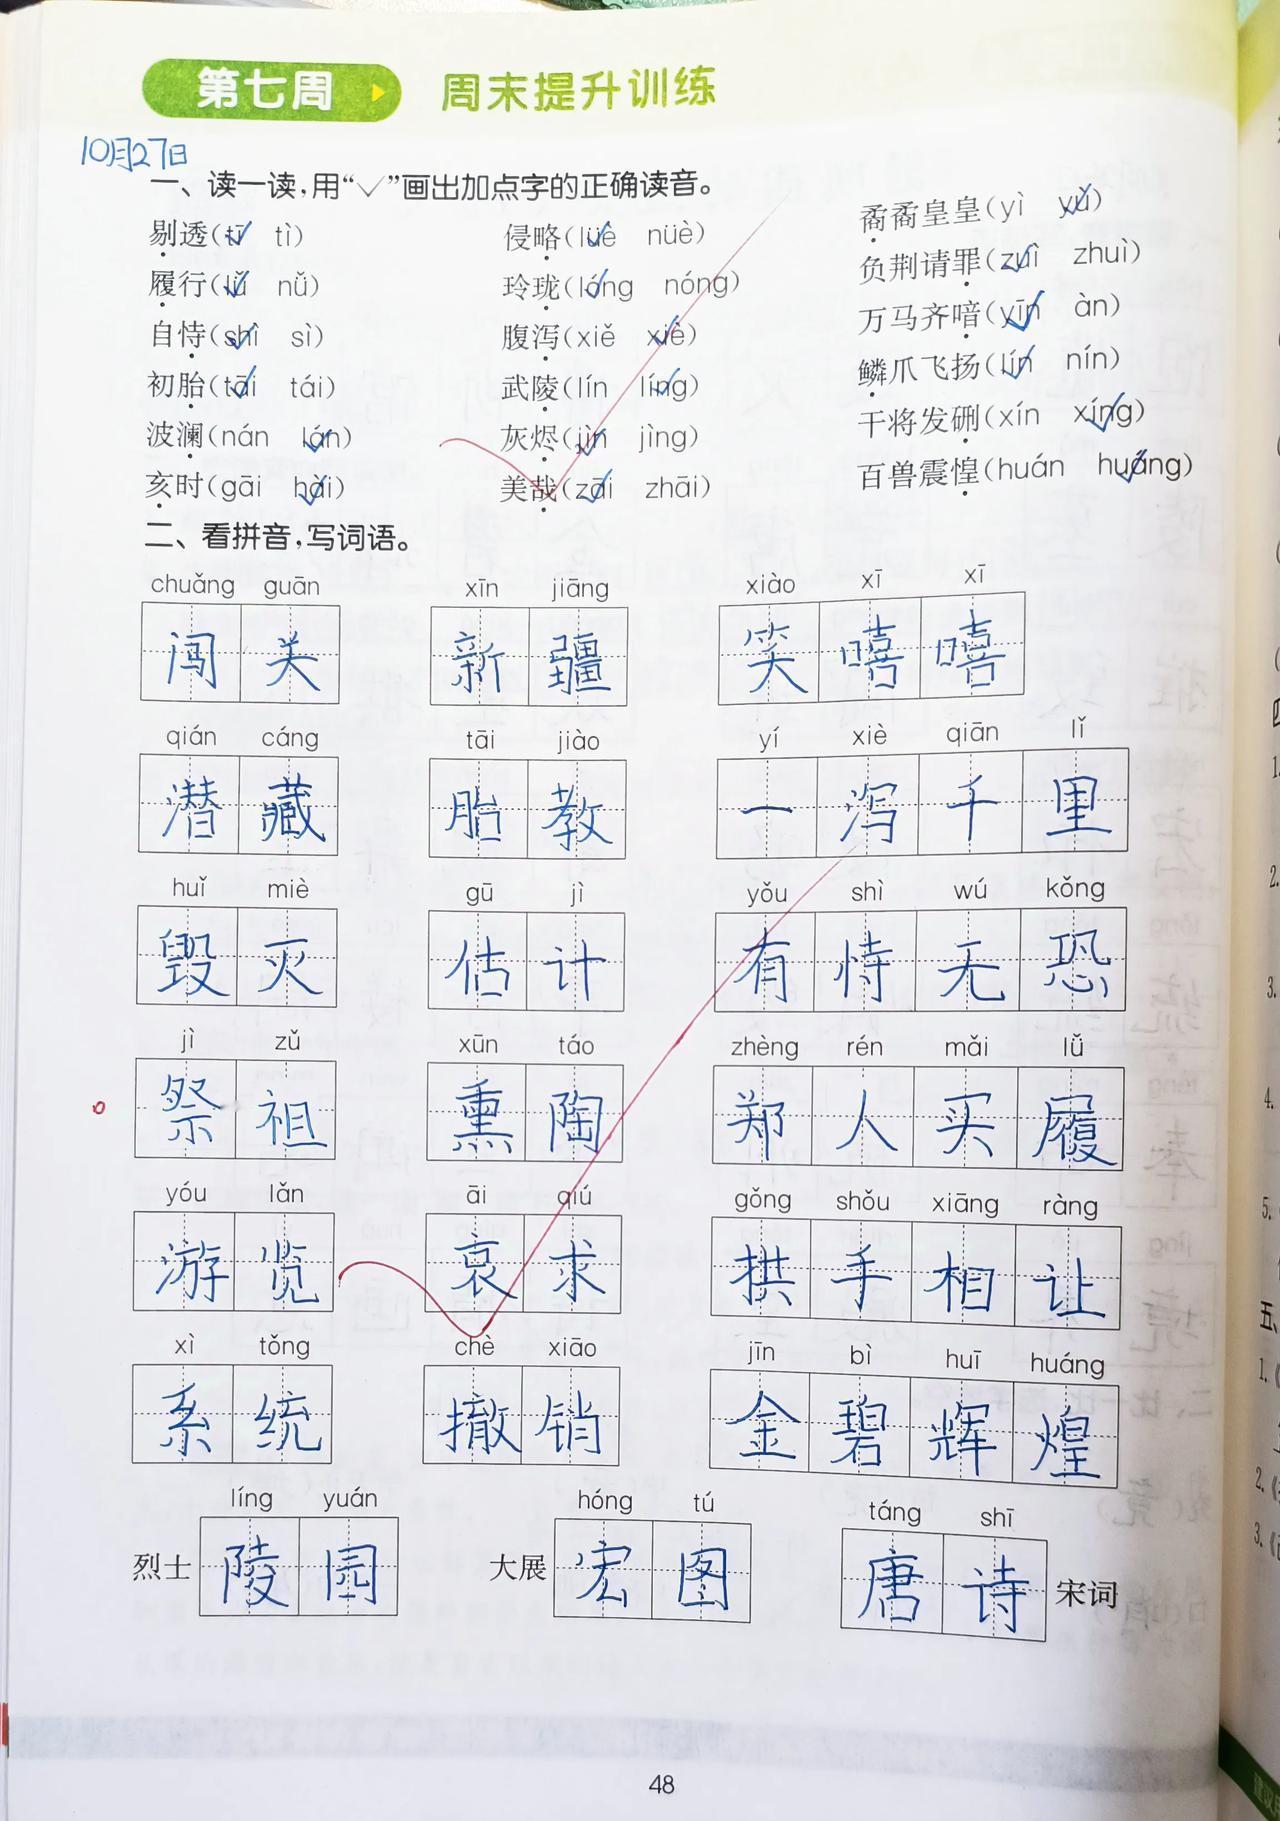 第七周 周末提升训练
10月27日
一、读一读，用“√”画出加点字的正确读音。
剔透(tī tì) 侵略(lüè nüè) 矞矞皇皇(yì yù)
履行(lǚ nǚ) 玲珑(lóng nóng) 负荆请罪(zuì zhuì)
自恃(shì sì) 腹泻(xiě xiè) 万马齐喑(yīn àn)
初胎(tāi tái) 武陵(lín líng) 鳞爪飞扬(lín nín)
波澜(nán lán) 灰烬(jìn jìng) 干将发硎(xín xíng)
亥时(gāi hài) 美哉(zāi zhāi) 百兽震惶(huán huáng)
二、看拼音，写词语。
chuǎng guān xīn jiāng xiào xī xī
闯关 新疆 笑嘻嘻
qián cáng tāi jiào yí xiè qiān lǐ
潜藏 胎教 一泻千里
huǐ miè gū jì yǒu shì wú kǒng
毁灭 估计 有恃无恐
jì zǔ xūn táo zhèng rén mǎi lǚ
祭祖 熏陶 郑人买履
yóu lǎn āi qiú gǒng shǒu xiāng ràng
游览 哀求 拱手相让
xì tǒng chè xiāo jīn bì huī huáng
系统 撤销 金碧辉煌
líng yuán hóng tú táng shī
烈士 陵园 大展 宏图 唐诗 宋词
48